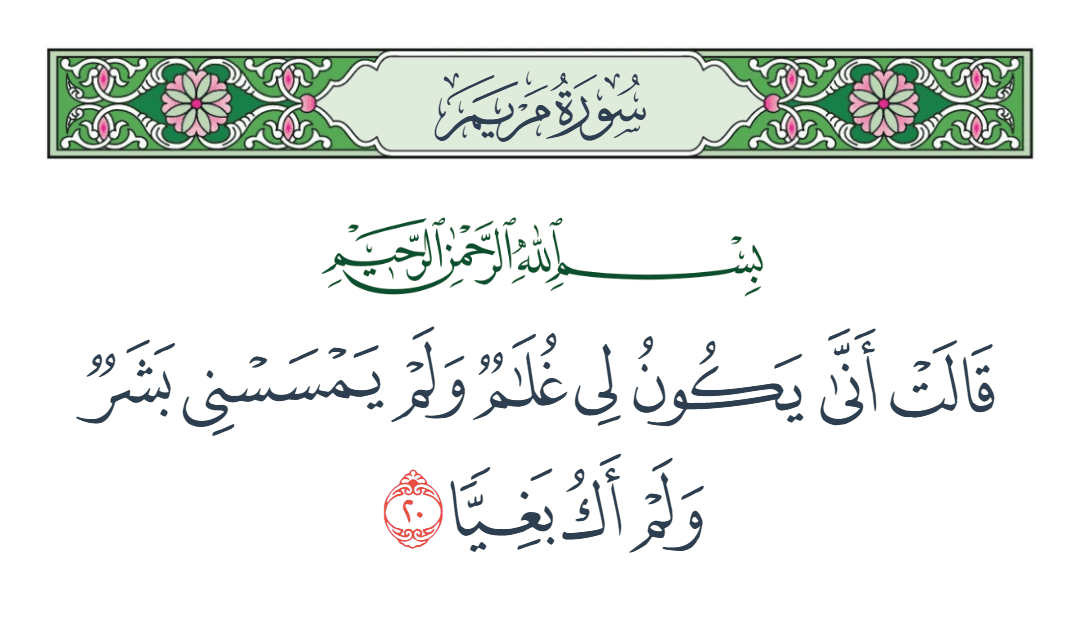 سُورَةُ مَرْيَمَ
بِسْمِ ٱللَّهِ ٱلرَّحْمَٰنِ ٱلرَّحِيمِ
قَالَتْ أَنَّىٰ يَكُونُ لِى غُلَٰمٌ وَلَمْ يَمْسَسْنِى بَشَرٌ
وَلَمْ أَكُ بَغِيًّا ٢٠